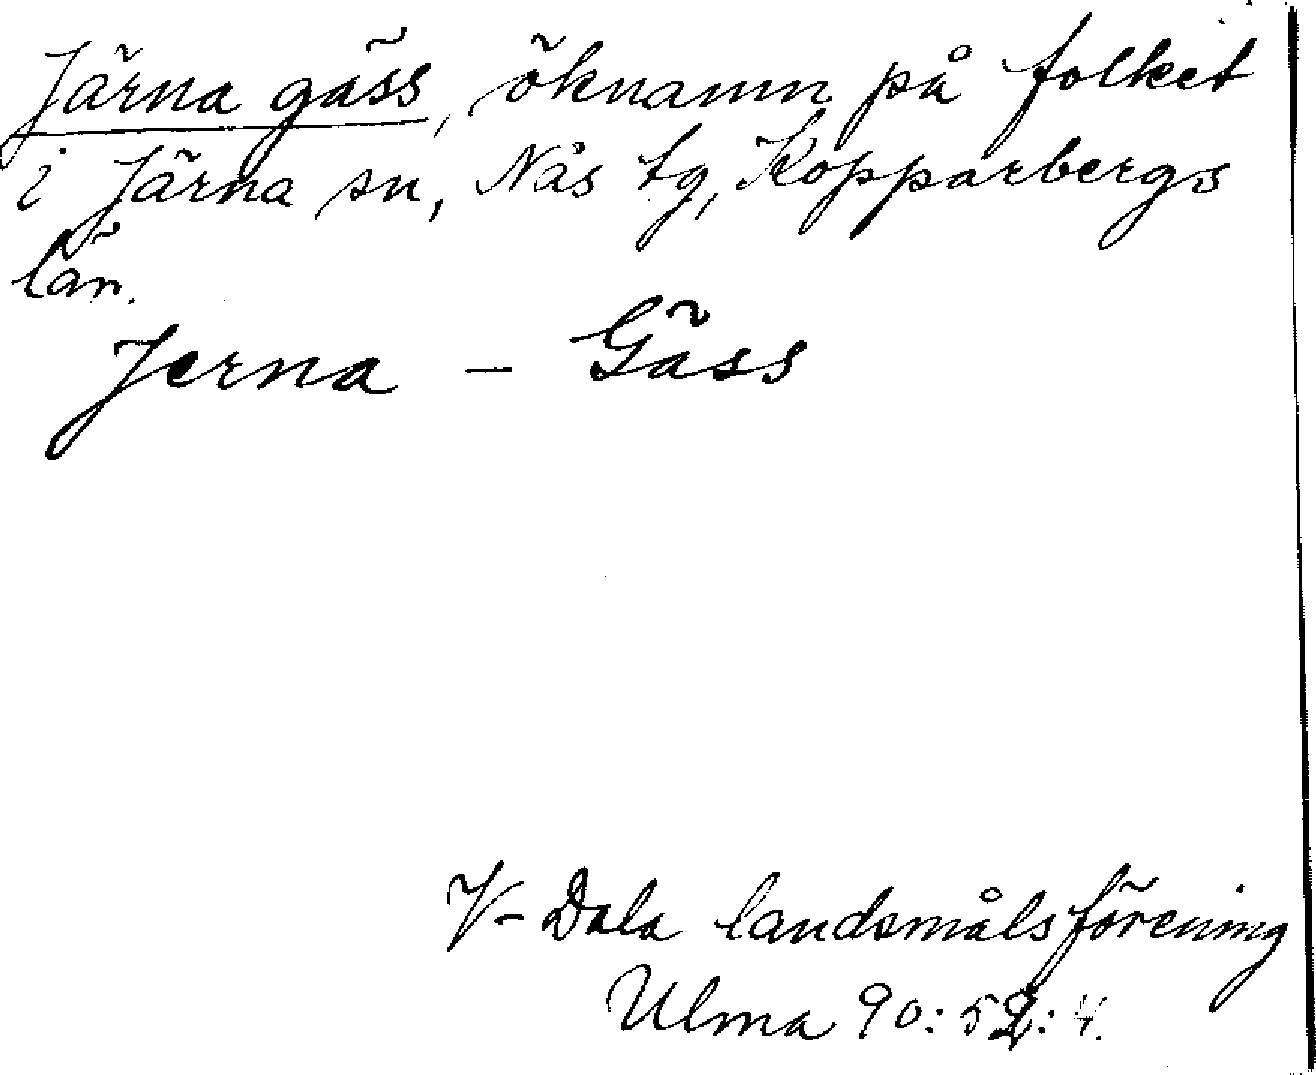 Järna gäss, öknamn på folket
i Järna sn, Nås tg, Kopparbergs
län.
Jerna - Gäss
V-Dala landsmålsförening
Ulma 90:52:4.